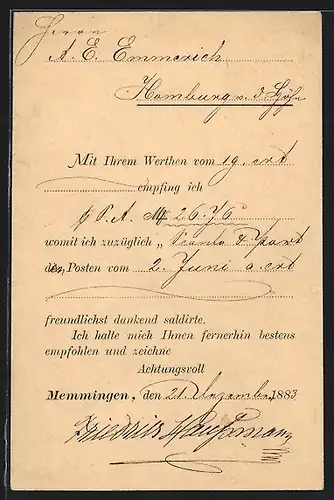 Herrn
A. E. Emmerich
Homburg v. d. Höhe
Mit Ihrem Werthen vom 19. crt
empfing ich
p P. A. M 26.76
womit ich zuzüglich „
Posten vom 2. Juni a. crt
freundlichst dankend saldirte.
Ich halte mich Ihnen fernerhin bestens
empfohlen und zeichne
Achtungsvoll
Memmingen, den 21 Dezember 1883
Friedrich